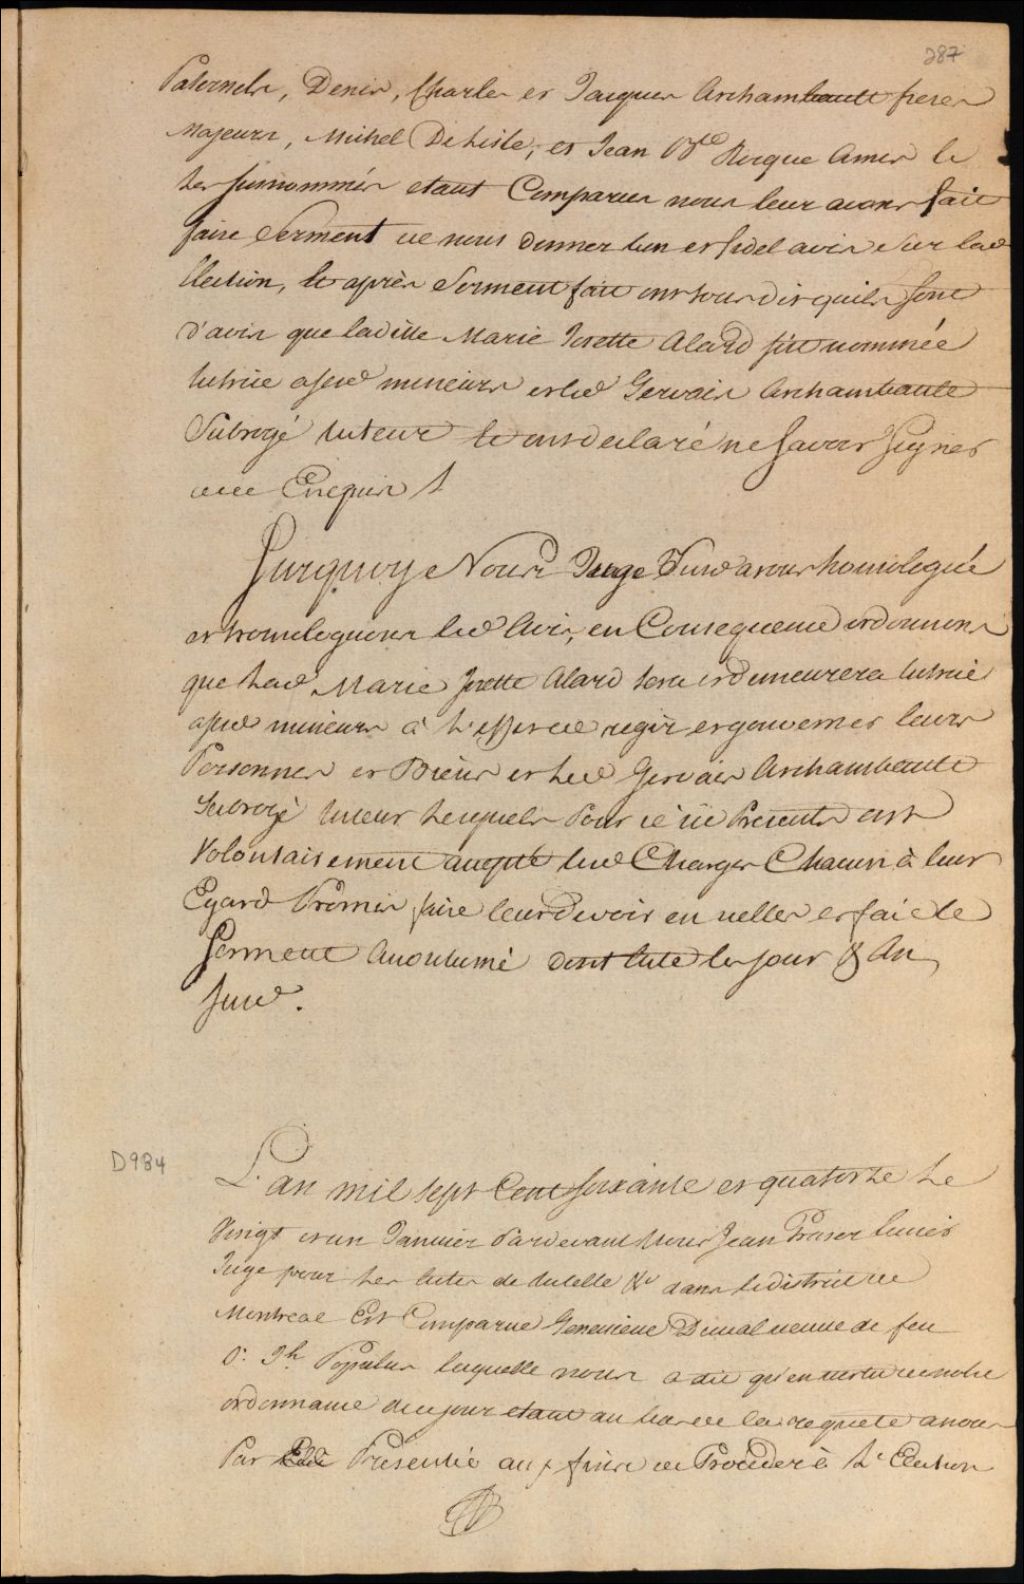 287
Paternels, Denis, Charles et Jacques Archambault freres
Majeurs, Michel Delisle, et Jean Bte Rocque Amis le
les surnommés etant Comparus nous leur avons fait
faire Serment de nous donner bon et fidel avis Sur lad
Election, et après Serment fait ont tous dit quils sont
d'avis que ladite Marie Josette Alard fut nommée
tutrice asesd mineurs et led Gervais Archambault
Subrogé tuteur et ont declaré ne savoir Signer
de ce Enquis
Surquoy Nous Juge Susd avons homologué
et homologuons led Avis, en Consequence ordonnons
que Lad Marie Josette Alard sera et demeurera tutrice
asesd mineurs à L'effet de regir et gouverner leurs
Personnes et Biens et led Gervais Archambault
Subrogé tuteur Lesquels Pour ce Presents ont
Volontairement accepté lesd Charges Chacun à leur
Egard Promis faire leur Devoir en icelles et fait le
Serment Accoutumé dont acte les jour & An
Susd.
D984
L'an mil sept Cent soixante et quatorze Le
Vingt et un Janvier Pardevant Nous Jean Fraser Ecuier
Juge pour Les actes de tutelle &c dans le district de
Montreal Est Comparue Genevieve Duval veuve de feu
Sr. Jh. Papulus laquelle nous a dit qu'en vertu de notre
ordonnance de ce jour etant au bas de la requete a nous
Par Elle Presentée aux fins de Proceder à L'Election